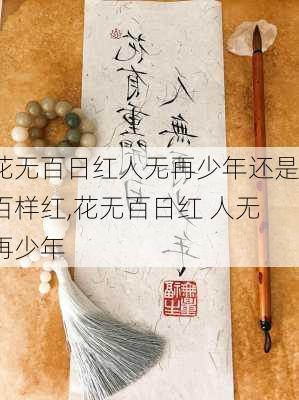 花有重開日
人無再少年
花无百日红人无再少年还是
百样红,花无百日红 人无
再少年